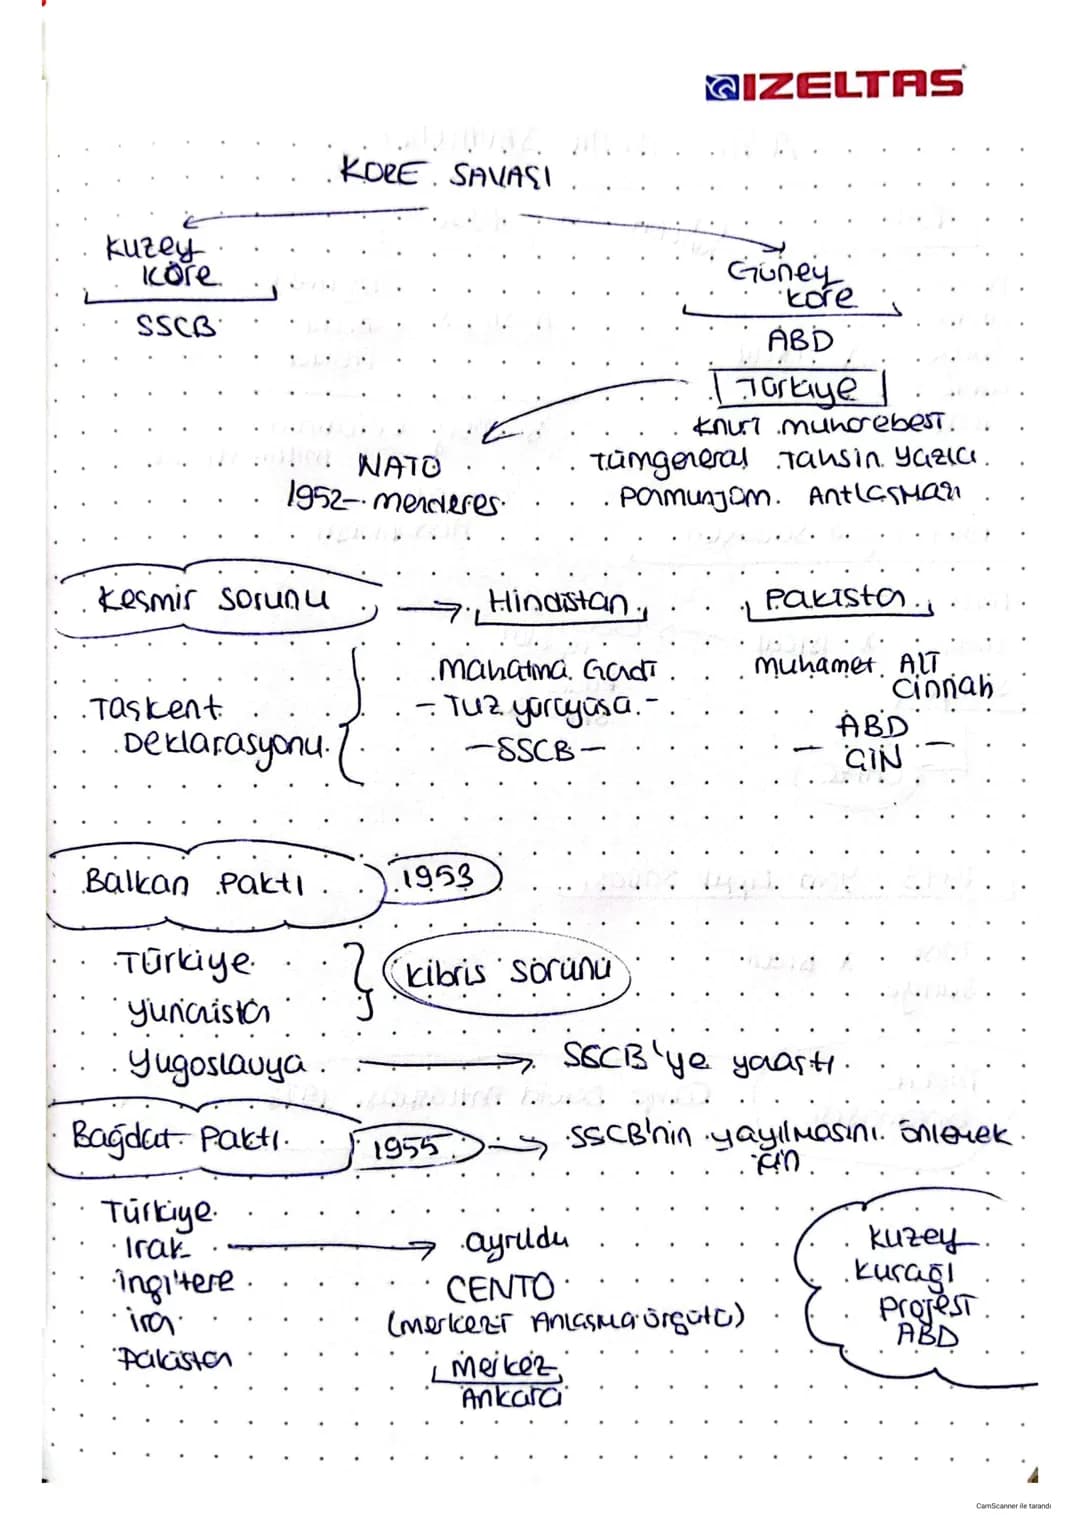 IZELTAS
KORE SAVAŞI
Kuzey
Köre
SSCB
Güney
Kore
ABD
Türkiye
Knuri muharebesi
Tümgeneral Tahsin Yazıcı
Panmunjom Antlaşması
NATO
1952- menderes
Keşmir Sorunu
Hindistan
Pakistan
Mahatma Gadi
- Tuz yürüyüşü -
- SSCB -
Muhamet Ali
Cinnah
ABD
- ÇİN -
Taşkent
Deklarasyonu
Balkan Paktı 1953
Türkiye
Yunanistan
Kıbrıs sorunu
Yugoslavya → SSCB'ye yanaştı
Bağdat Paktı 1955 → SSCB'nin yayılmasını önlemek
için
Türkiye
Irak → ayrıldı
İngiltere
İran
Pakistan
CENTO
(Merkezi Anlaşma Örgütü)
Merkez
Ankara
Kuzey
Kuşağı
Projesi
ABD
CamScanner ile tarandı